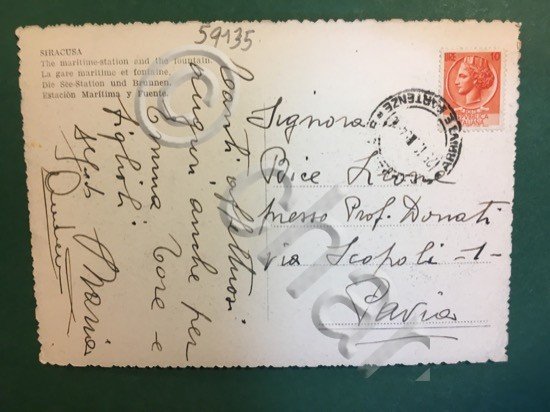 59135
SIRACUSA
The maritime-station and the fountain
La gare maritime et fontaine.
Die See-Station und Brunnen.
Estación Maritima y Fuente.
Tanti affettuosi
auguri anche per
Tore e
figlioli
Maria
Signora
Bice Leone
presso Prof. Donati
via Scopoli - 1 -
Pavia
LIRE 10
ITALIANA
PARTENZE
©